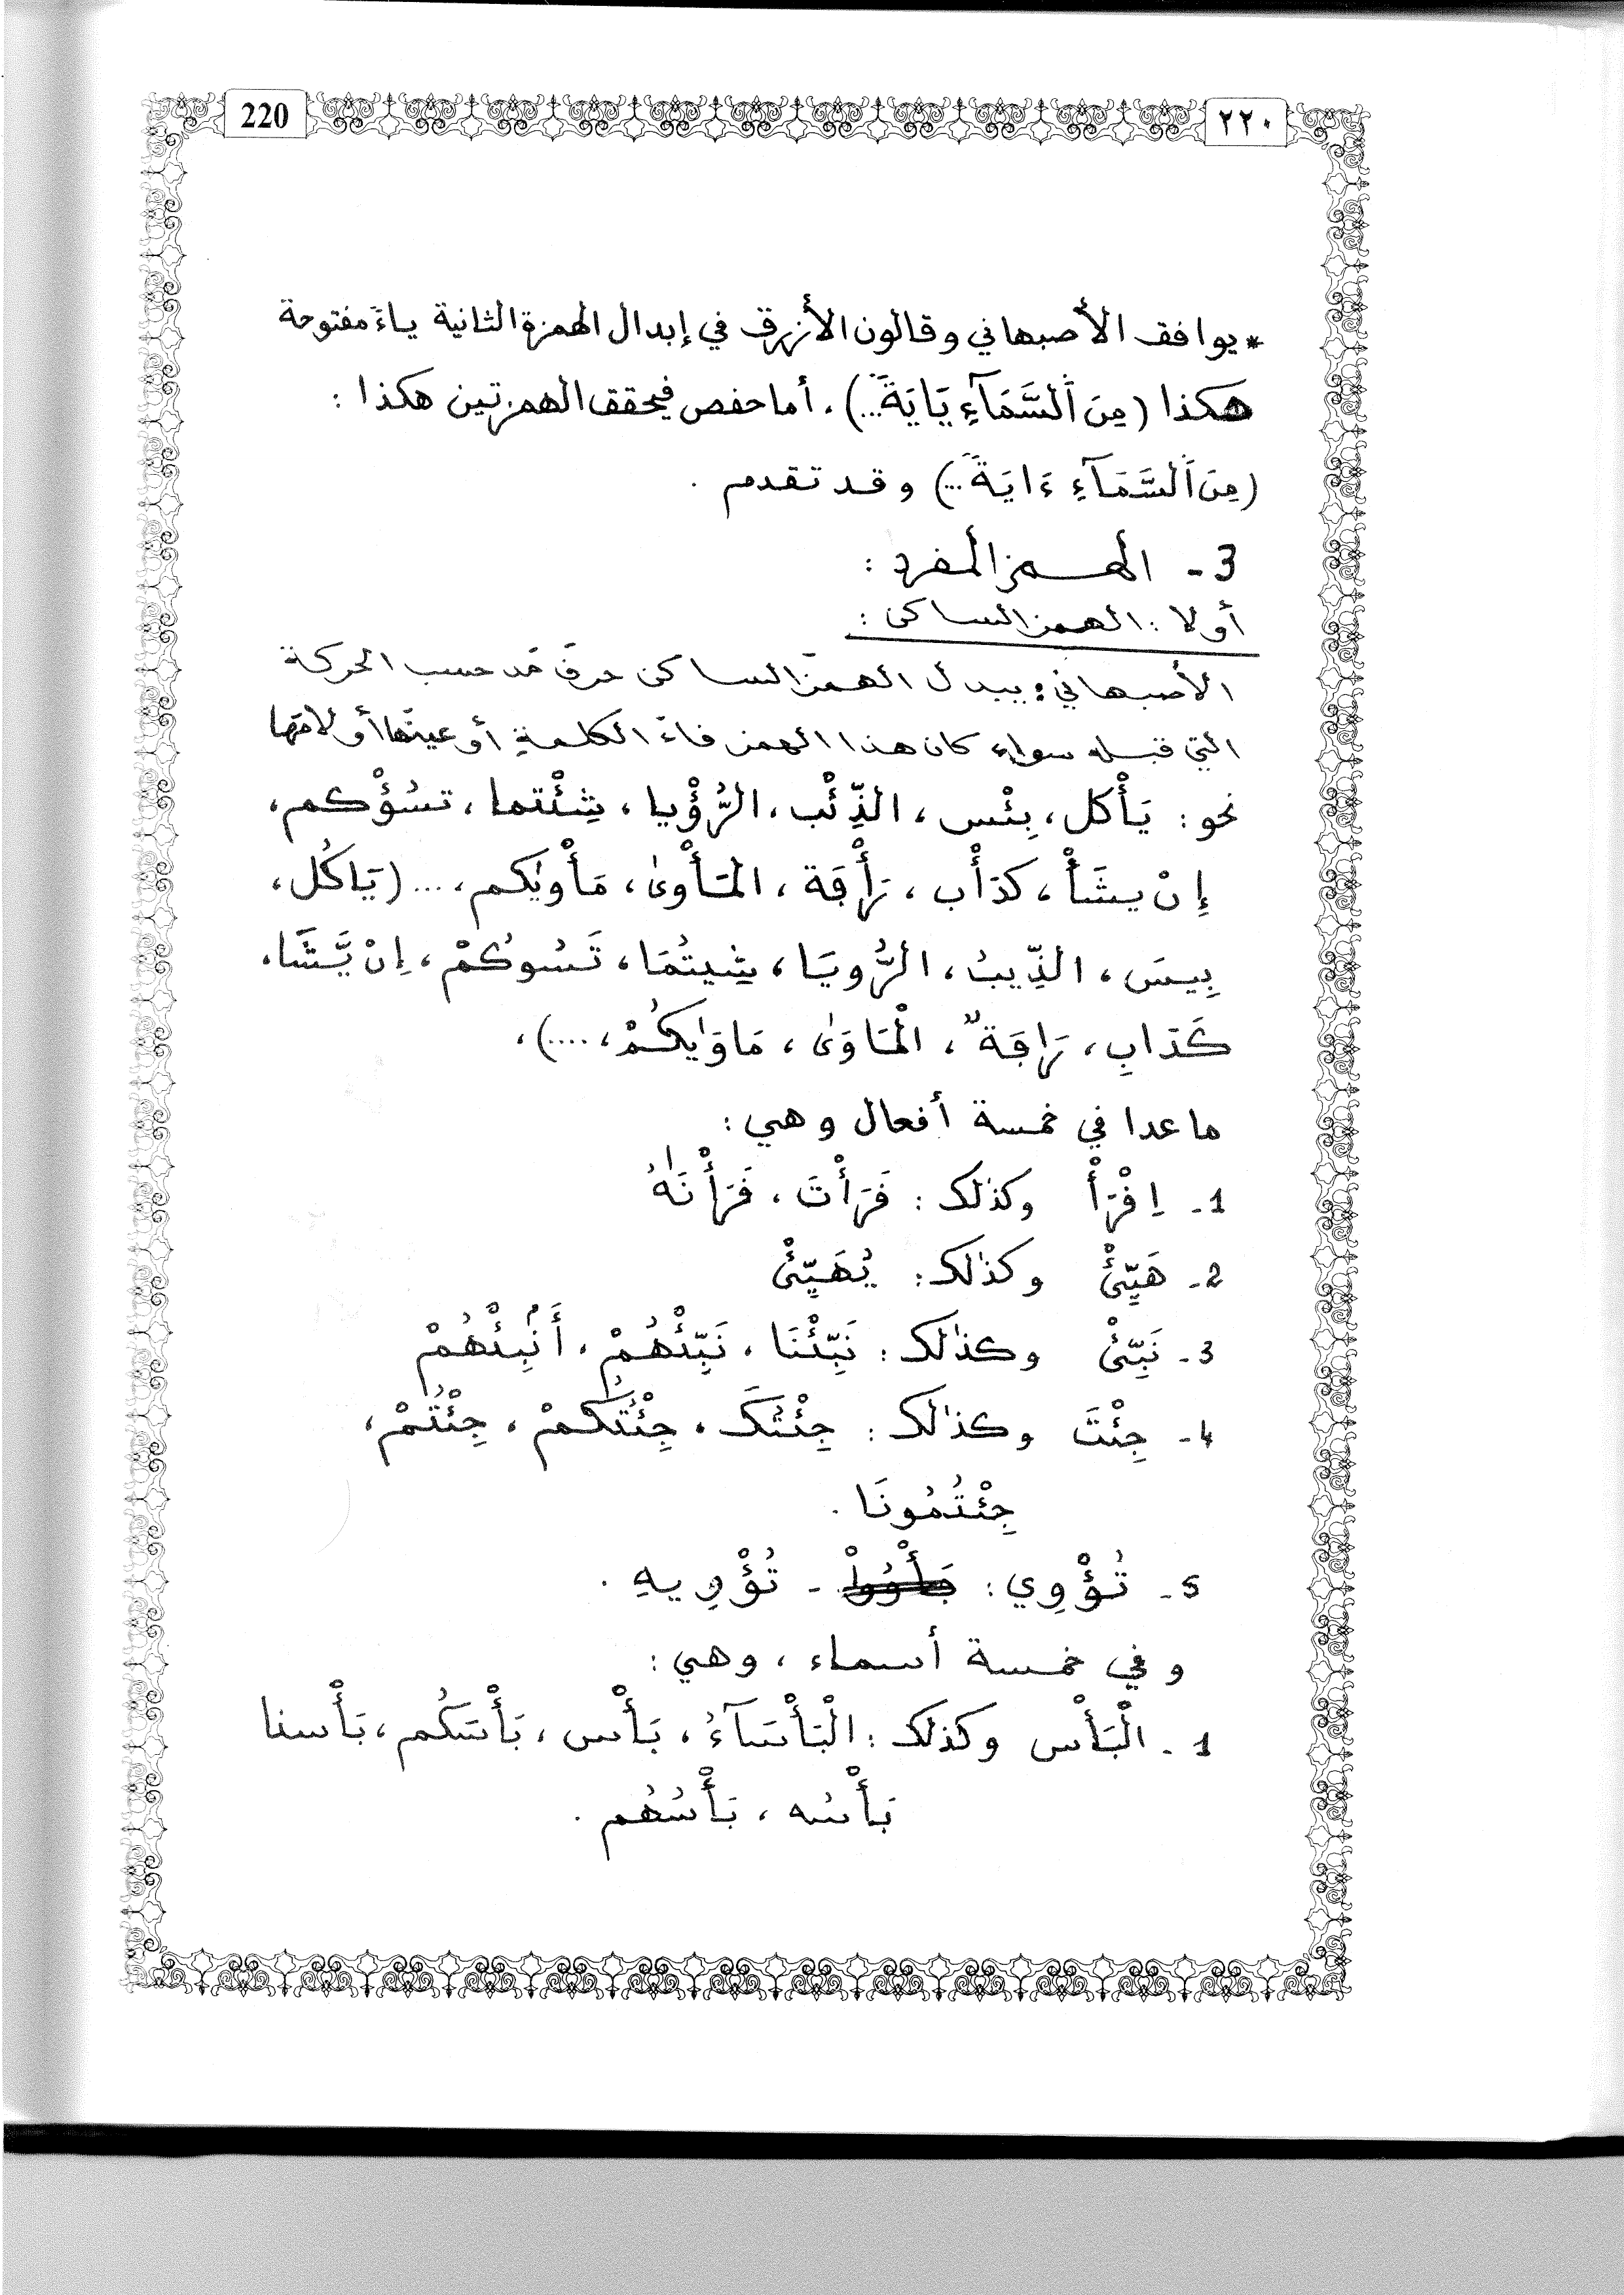 220 ٢٢٠
* يوافق الأصبهاني وقالون الأزرق في إبدال الهمزة الثانية ياءً مفتوحة
هكذا (مِنَ اَلسَّمَآءِ يَايَةً...). أما حفص فيحقق الهمزتين هكذا :
(مِنَ اَلسَّمَآءِ ءَايَةً...) وقد تقدم .
3 - الهمز المفرد :
أولا : الهمز الساكن :
الأصبهاني : يبدل الهمز الساكن حرفَ مَد حسب الحركة
التي قبله سواء كان هذا الهمز فاءَ الكلمةِ أو عينَها أو لامَها
نحو : يَأْكل ، بِئْس ، الذِّئْب ، الرُّؤْيا ، شِئْتما ، تسُؤْكم ،
إِنْ يشَأْ ، كدَأْب ، رَأْفَة ، المَأْوىٰ ، مَأْوىٰكم ، ... (يَاكُل ،
بِيسَ ، الذِّيبُ ، الرُّويَا ، شِيتُمَا ، تَسُوكُمْ ، اِنْ يَّشَا ،
كَدَابِ ، رَافَةٌ ، الْمَاوَىٰ ، مَاوَىٰكُمْ ، ....) ،
ما عدا في خمسة أفعال وهي :
1 - اِقْرَأْ وكذلك : قَرَأْتَ ، قَرَأْنَٰهُ
2 - هَيِّئْ وكذٰلك : يُهَيِّئْ
3 - نَبِّئْ وكذٰلك : نَبِّئْنَا ، نَبِّئْهُمْ ، أَنۢبِئْهُمْ
4 - جِئْتَ وكذٰلك : جِئْتَكَ ، جِئْتُكُمْ ، جِئْتُمْ ،
جِئْتُمُونَا .
5 - تُؤْوِي : - تُؤْوِيهِ .
وفي خمسة أسماء ، وهي :
1 - الْبَأْس وكذلك : الْبَأْسَآءُ ، بَأْس ، بَأْسَكُم ، بَأْسنا
بَأْسُه ، بَأْسُهُم .